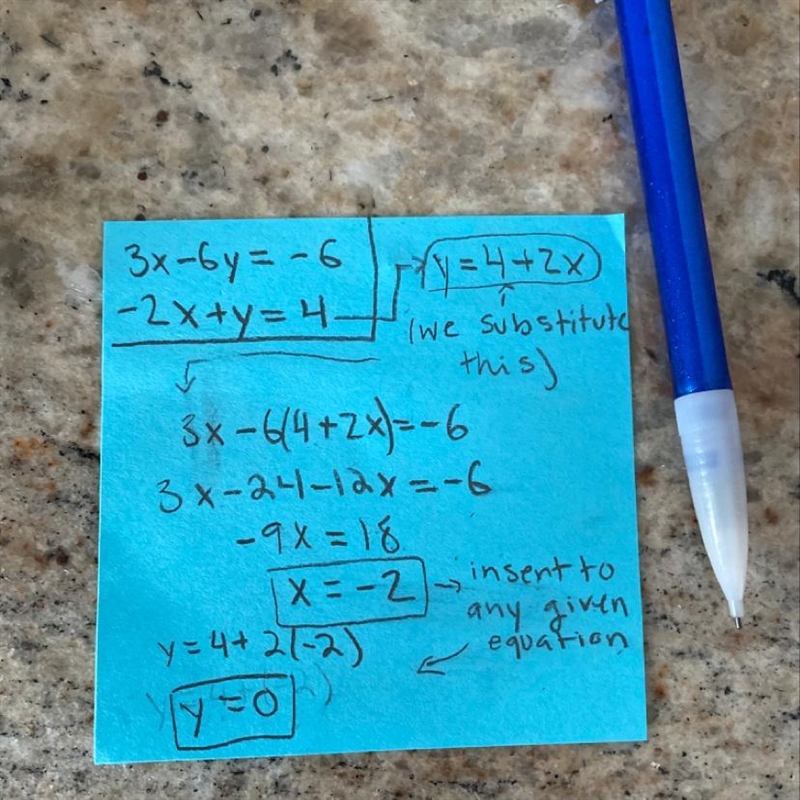 3x-6y= -6
-2x+y= 4
y=4+2x
(we substitute
this)
3x-6(4+2x)=-6
3x-24-12x=-6
-9x=18
x=-2
insent to
any given
equation
y=4+2(-2)
y=0